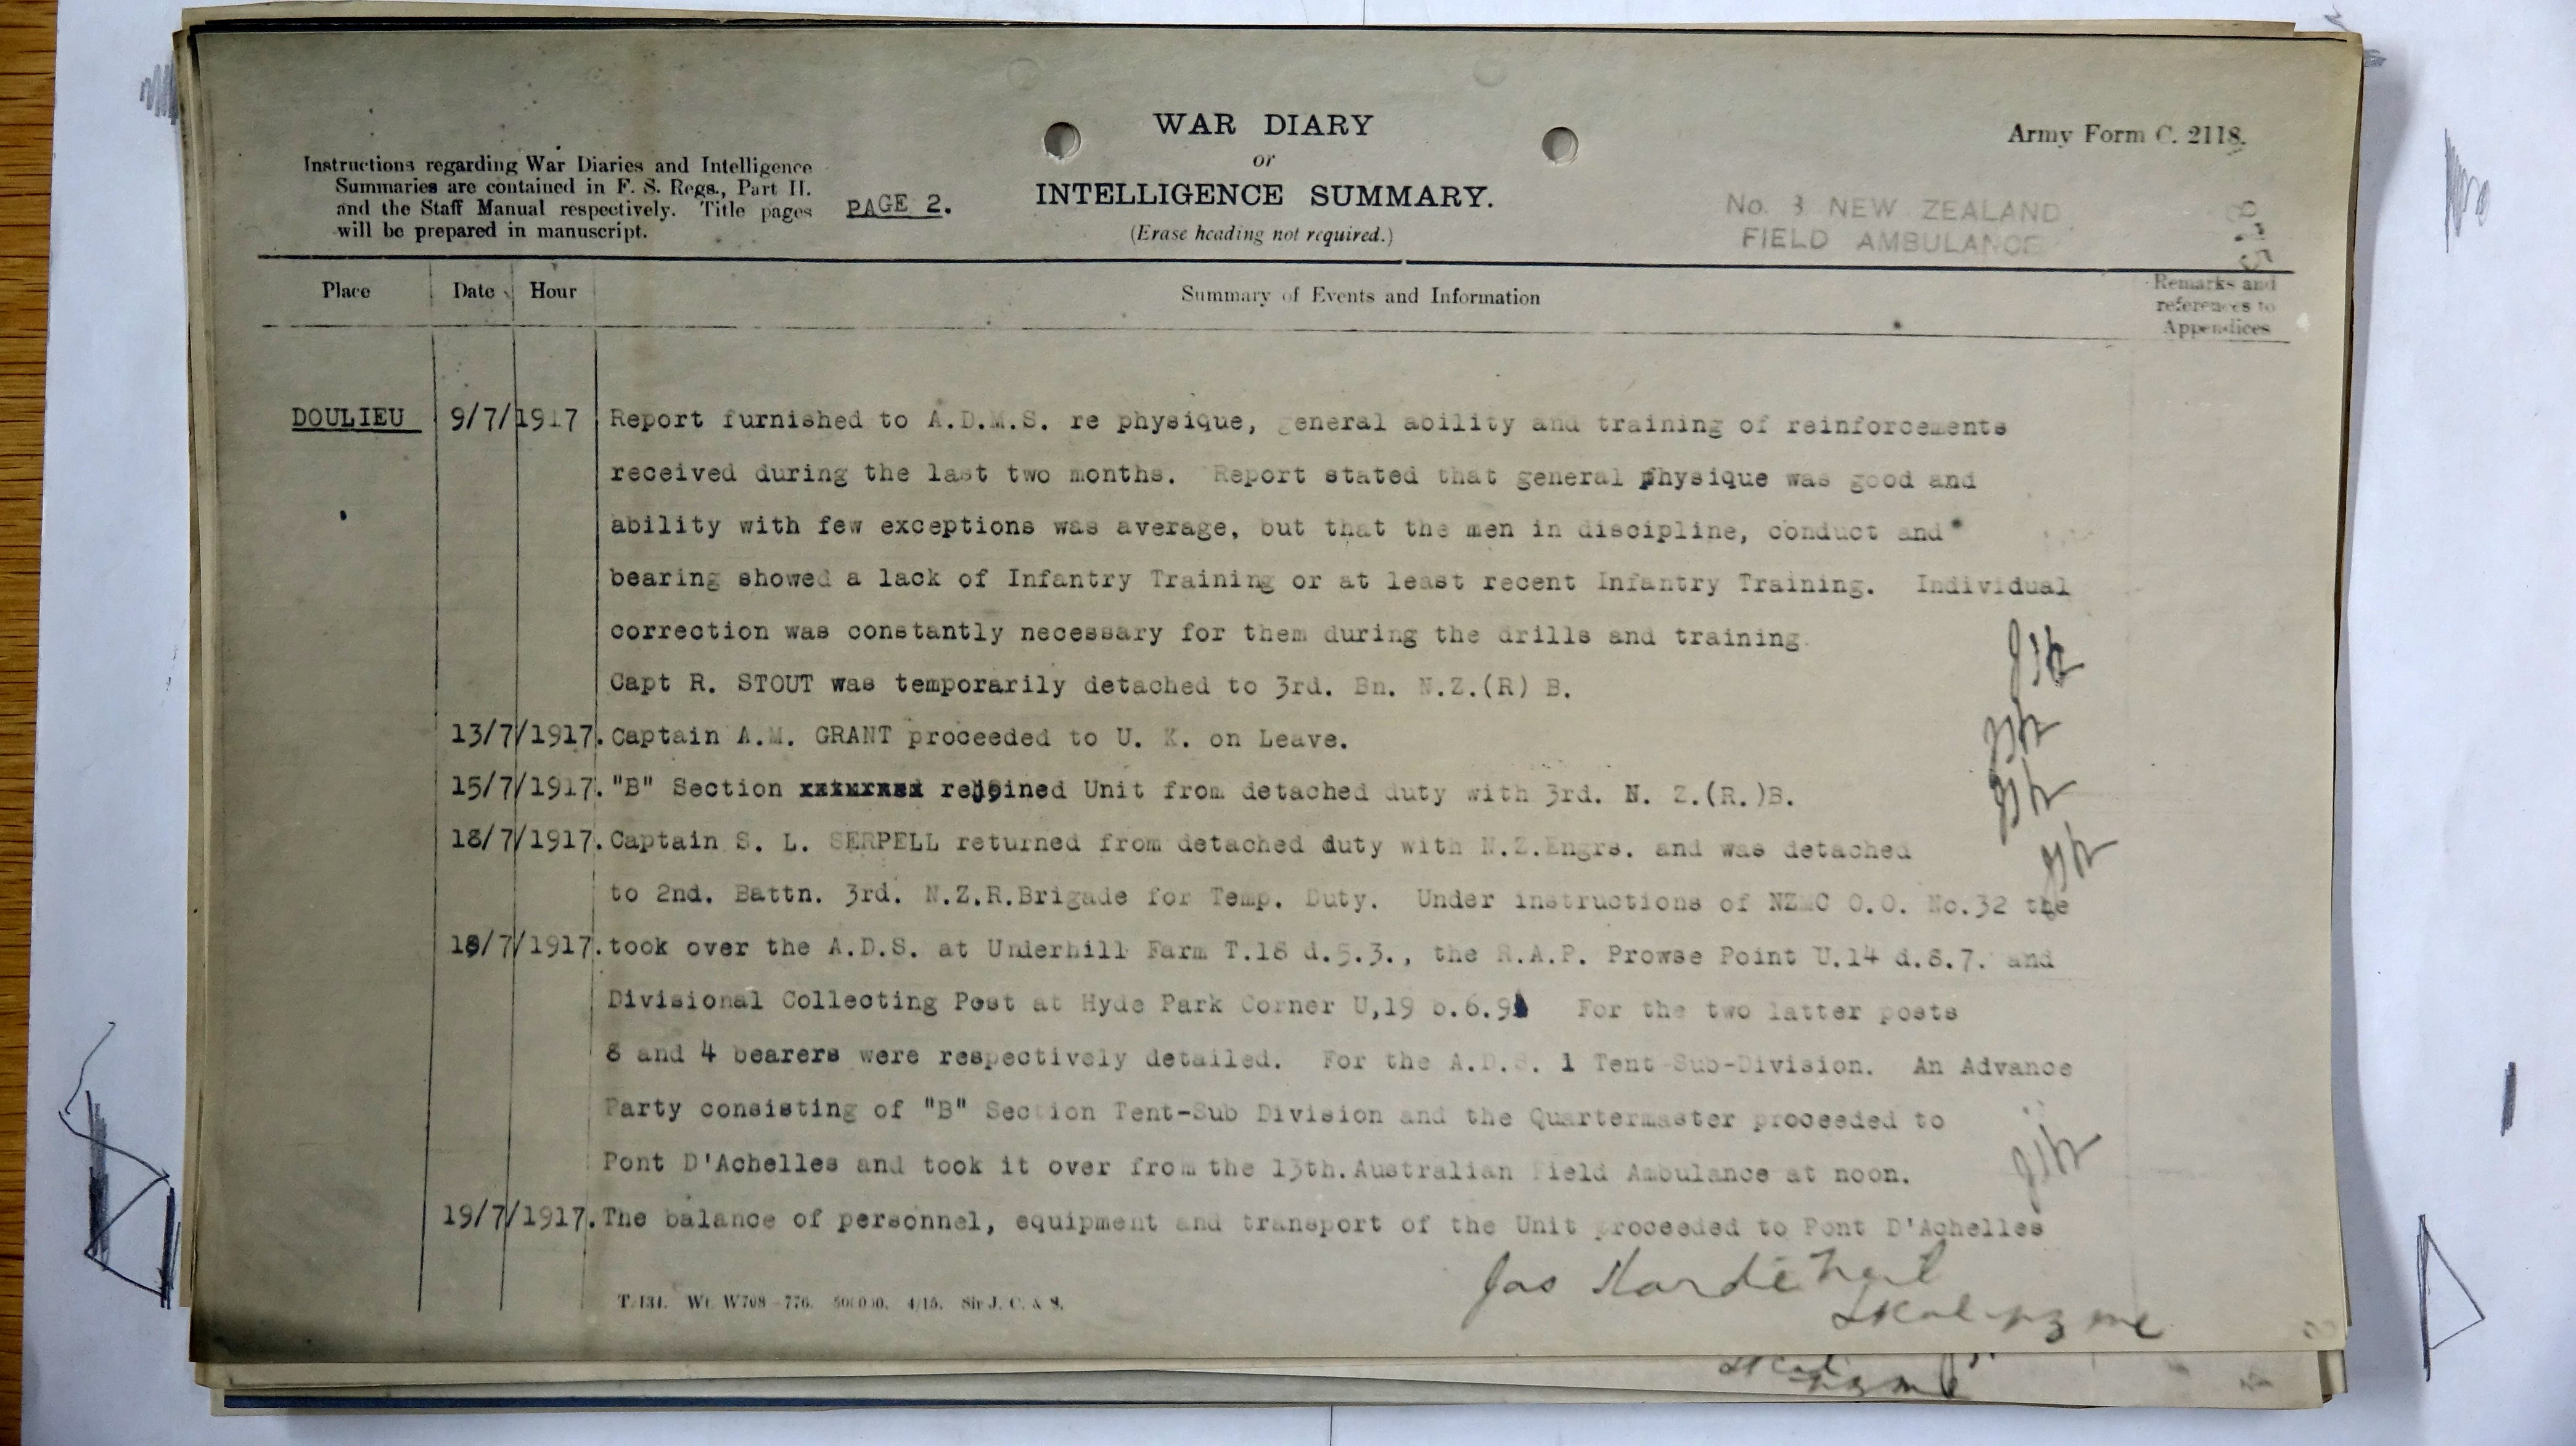 WAR DIARY
or
INTELLIGENCE SUMMARY.
(Erase heading not required.)
Army Form C. 2118.
Instructions regarding War Diaries and Intelligence
Summaries are contained in F. S. Regs., Part II.
and the Staff Manual respectively. Title pages
will be prepared in manuscript.
PAGE 2.
No. 3 NEW ZEALAND
FIELD AMBULANCE
Place Date Hour Summary of Events and Information Remarks and
references to
Appendices
DOULIEU 9/7/1917 Report furnished to A.D.M.S. re physique, general ability and training of reinforcements
received during the last two months. Report stated that general physique was good and
ability with few exceptions was average, but that the men in discipline, conduct and
bearing showed a lack of Infantry Training or at least recent Infantry Training. Individual
correction was constantly necessary for them during the drills and training.
Capt R. STOUT was temporarily detached to 3rd. Bn. N.Z.(R) B.
13/7/1917. Captain A.M. GRANT proceeded to U. K. on Leave.
15/7/1917. "B" Section rejoined Unit from detached duty with 3rd. N. Z.(R.)B.
18/7/1917. Captain S. L. SERPELL returned from detached duty with N.Z.Engrs. and was detached
to 2nd. Battn. 3rd. N.Z.R.Brigade for Temp. Duty. Under instructions of NZMC O.O. No.32 the
18/7/1917. took over the A.D.S. at Underhill Farm T.18 d.5.3., the R.A.P. Prowse Point U.14 d.8.7. and
Divisional Collecting Post at Hyde Park Corner U,19 b.6.9 For the two latter posts
8 and 4 bearers were respectively detailed. For the A.D.S. 1 Tent Sub-Division. An Advance
Party consisting of "B" Section Tent-Sub Division and the Quartermaster proceeded to
Pont D'Achelles and took it over from the 13th. Australian Field Ambulance at noon.
19/7/1917. The balance of personnel, equipment and transport of the Unit proceeded to Pont D'Achelles
Jas Hardie Neil
T.131. Wt. W708—776. 500000. 4/15. Sir J. C. & S.